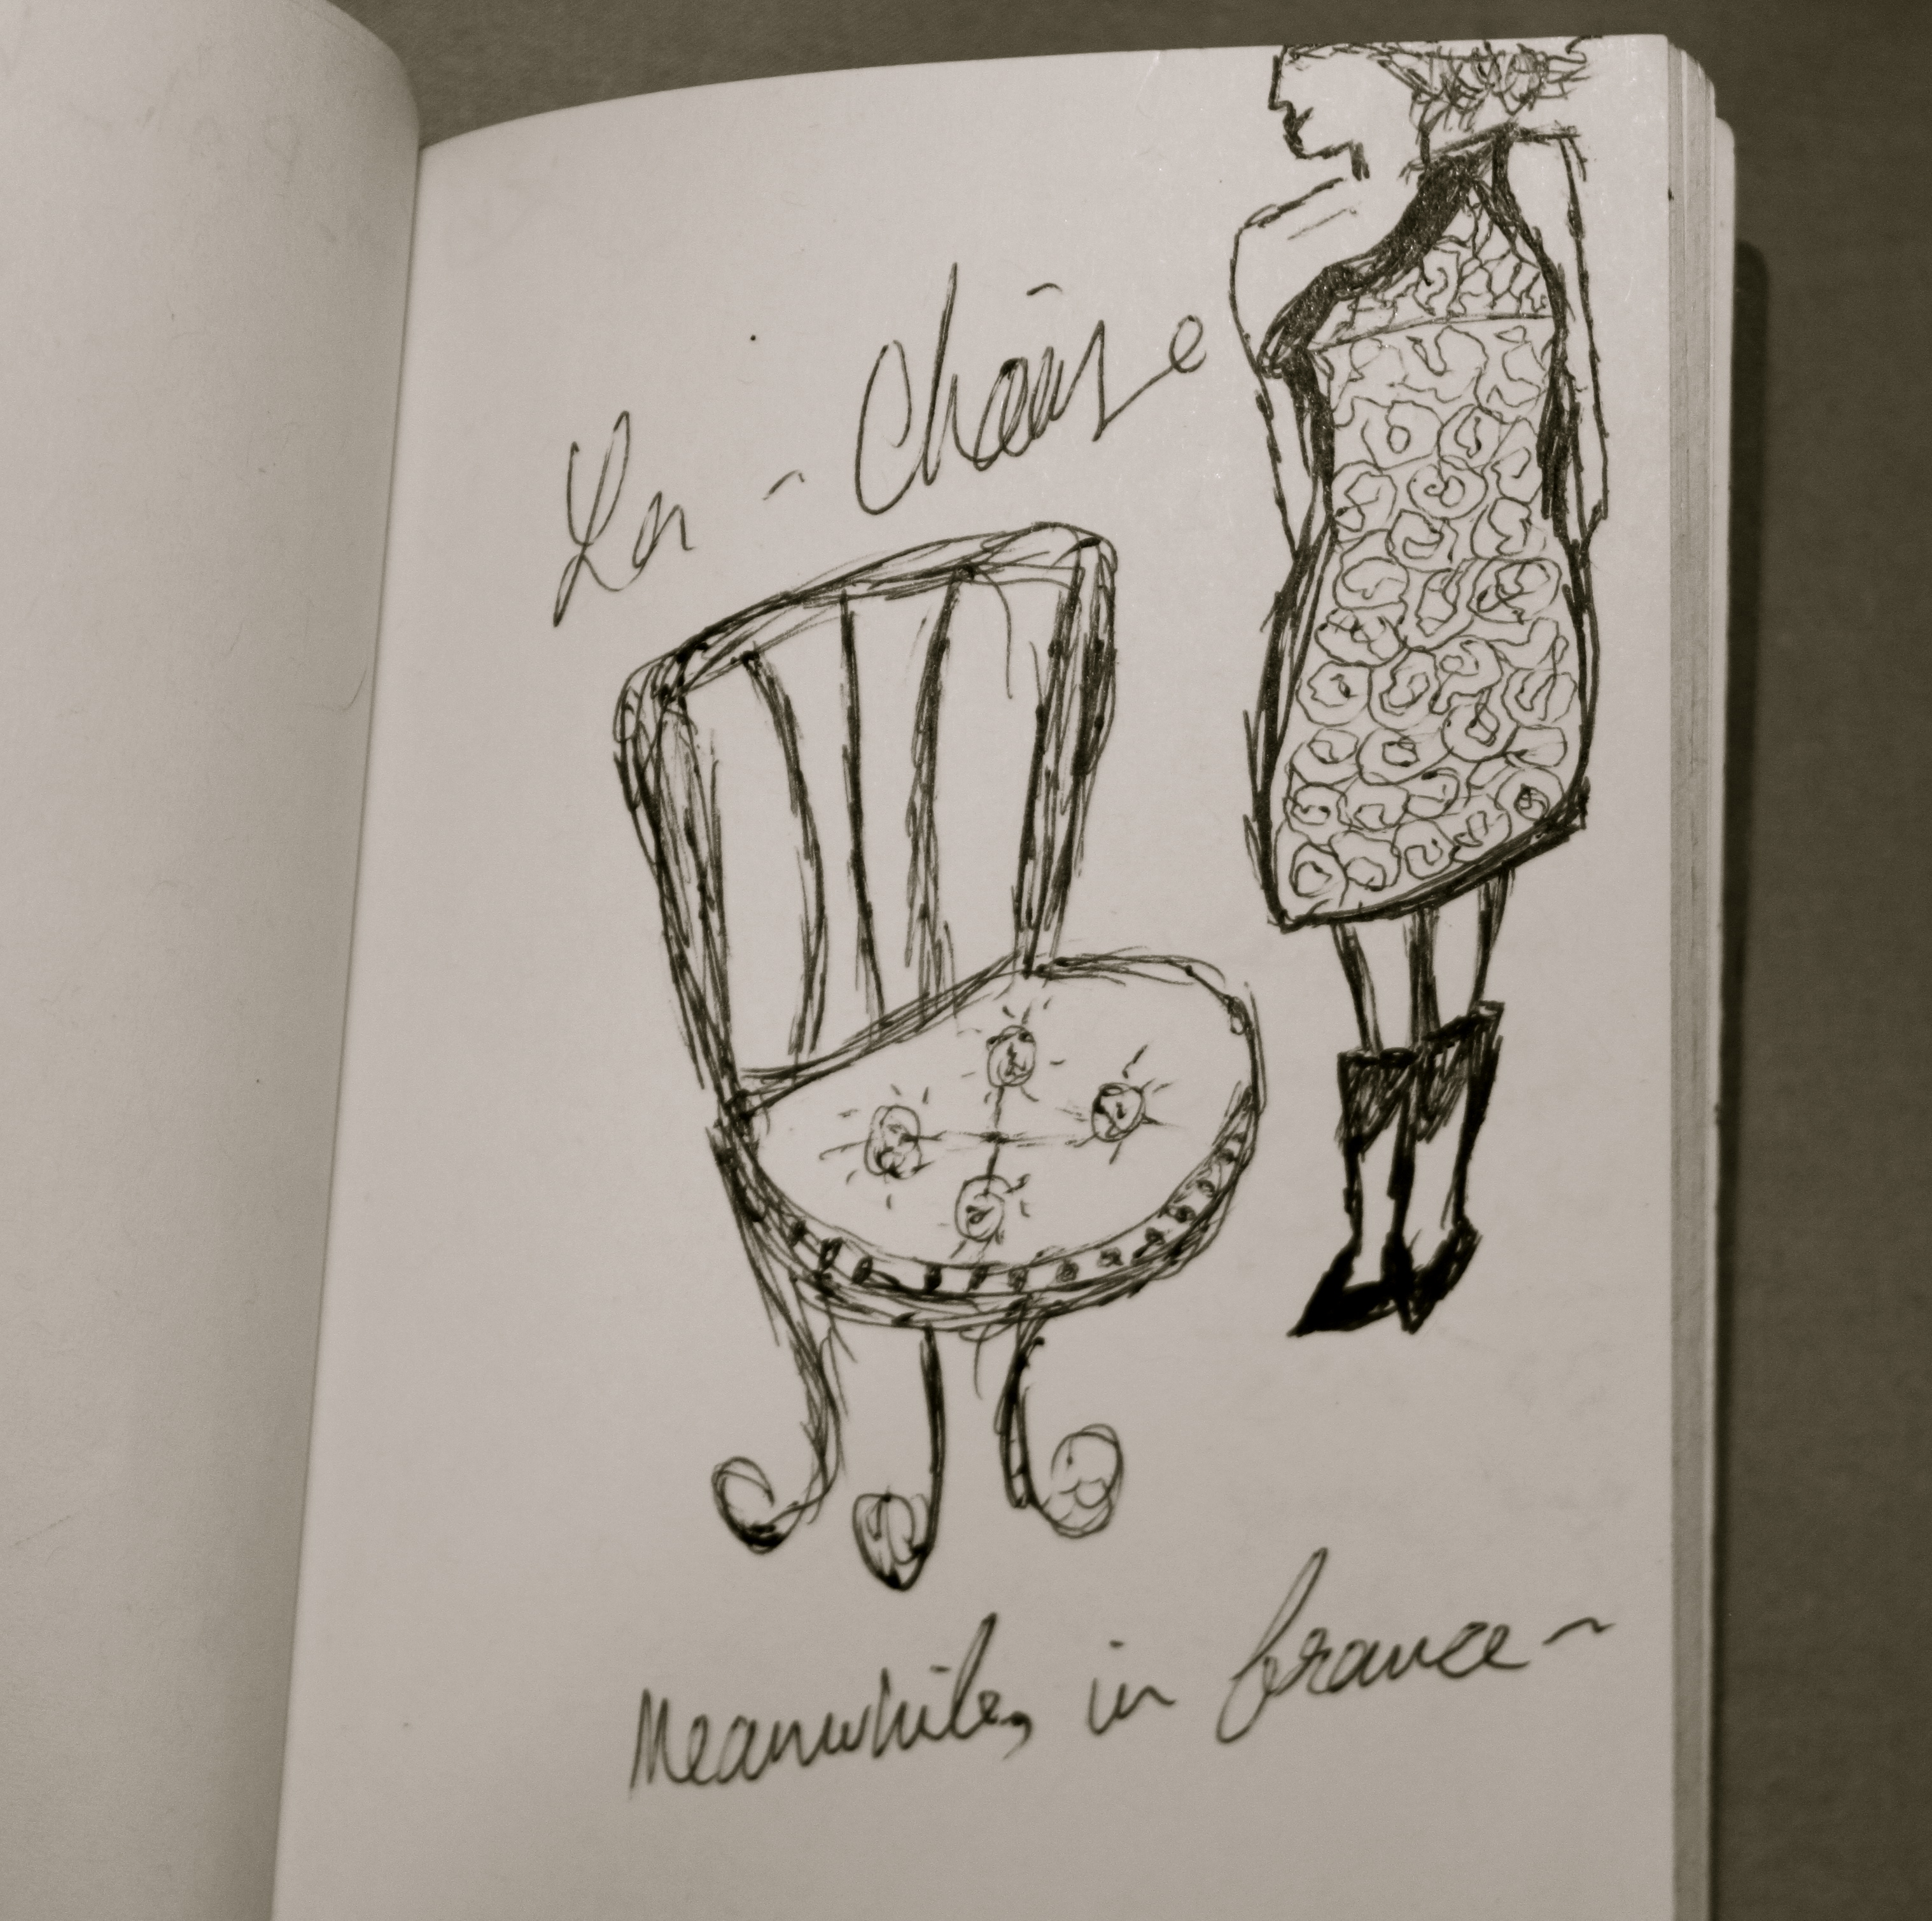 La - Chaise
Meanwhile, in france -